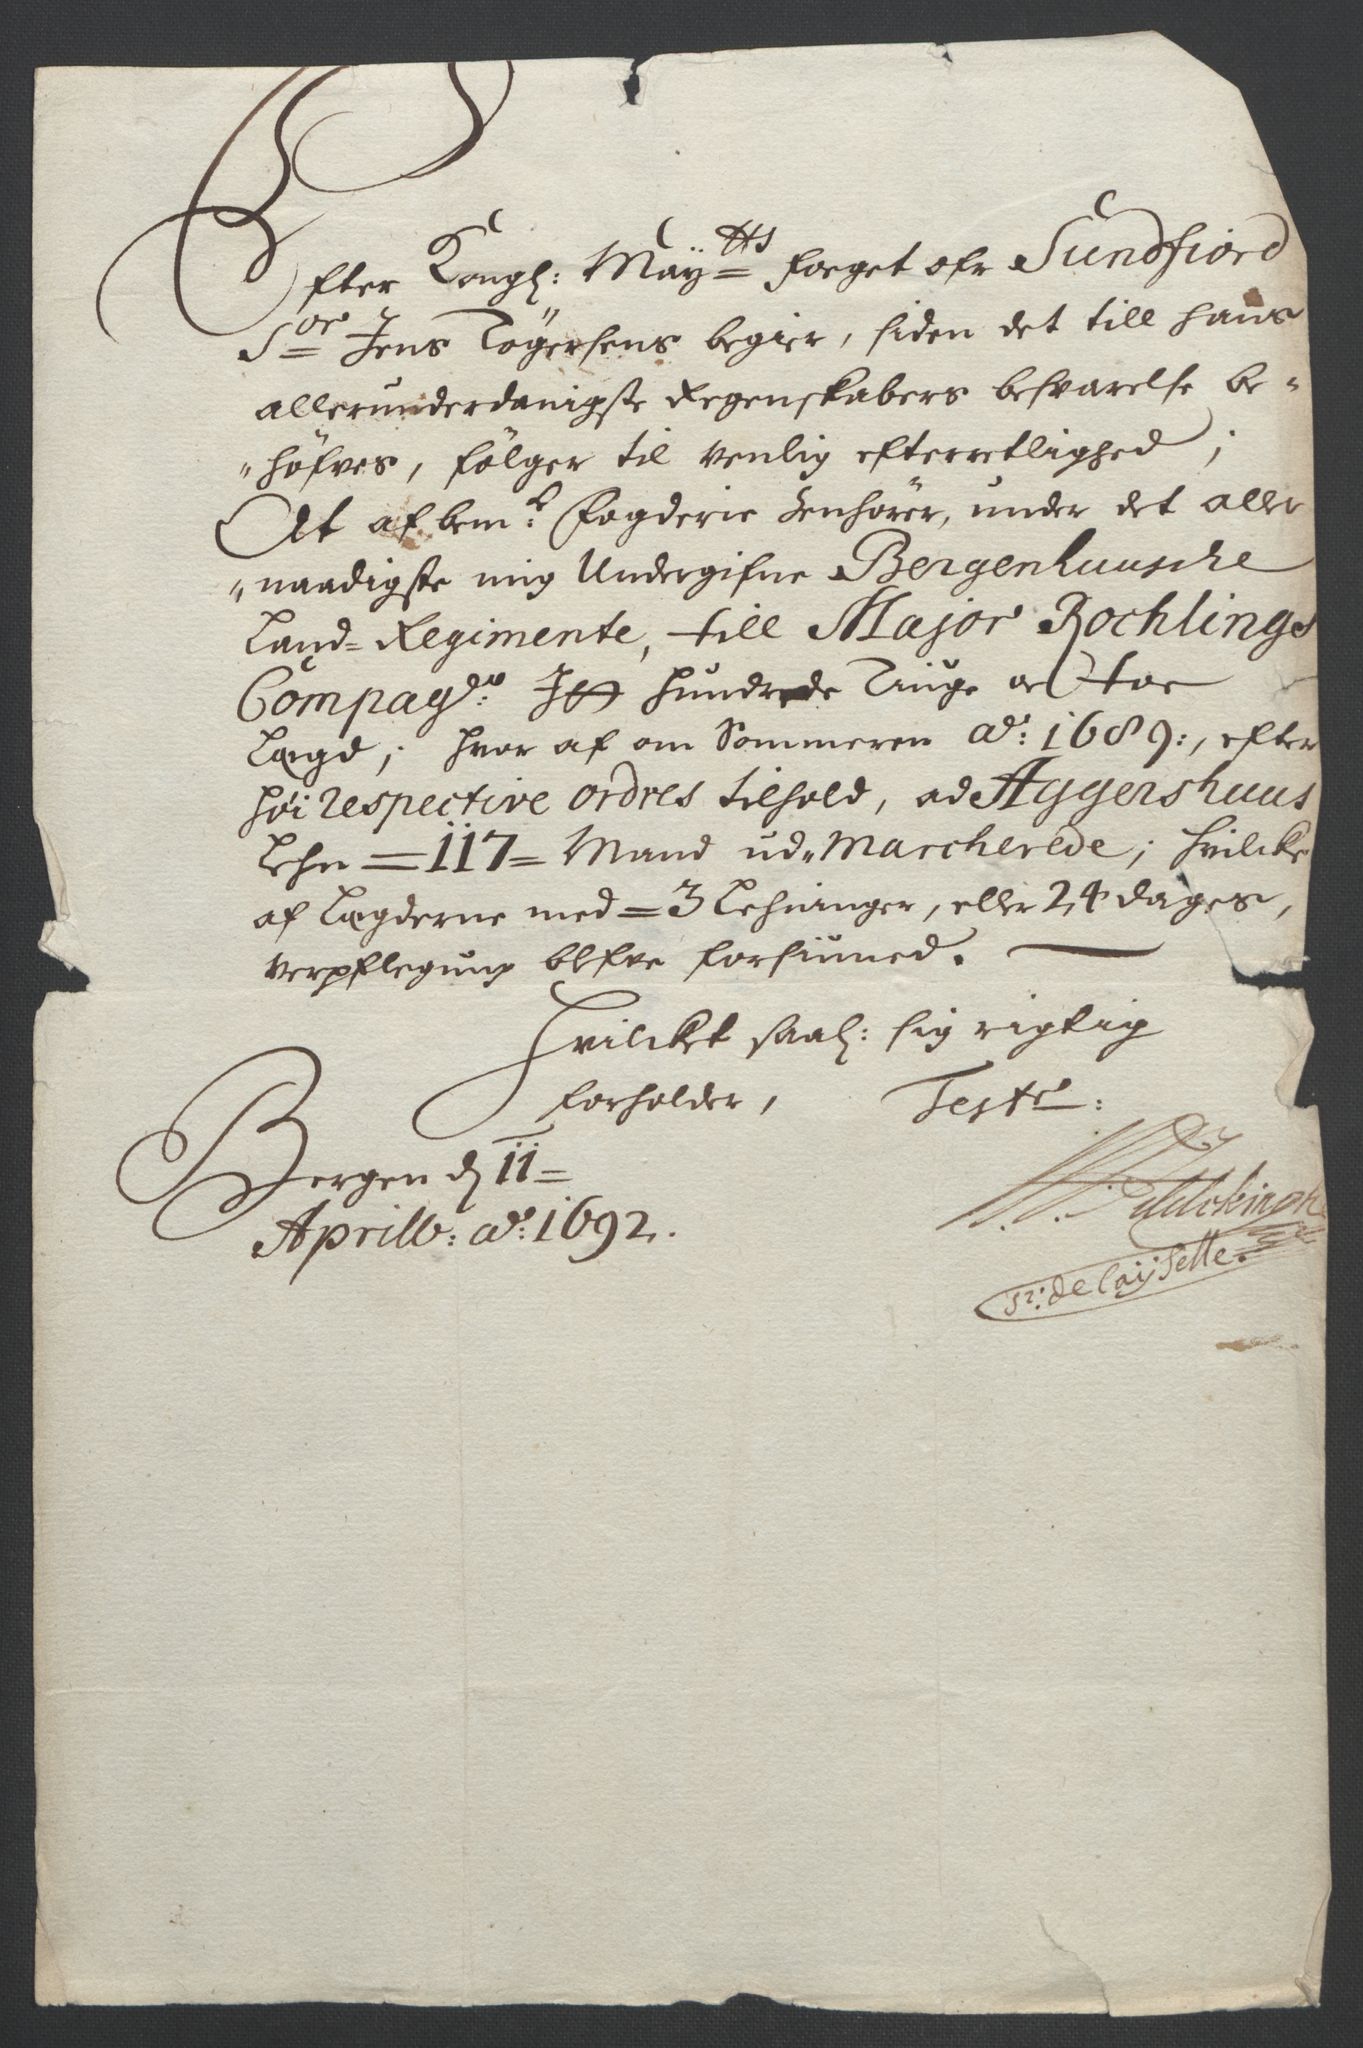 Efter Kongl: Maÿtts foeget ofr Sundfiord
Sor Jens Tögersens begier, siden det till hans
allerunderdanigste Regenskabers besvarelse be-
"höfves, fölger til venlig efterretlighed;
At af bemt: Fogderie henhörer, under det aller
"naadigste mig Undergifne Bergenhuusche
Land-Regimente, till Major Rochlings
Compagde: Itt hundrede Tiuge oc toe
Lægd; hvor af om Sommeren ao: 1689:, efter
höi respective ordres tilhold, ad Aggershuus
Lehn =117= Mand ud"marcherede; hvilcke
af Lægderne med =3 Lehninger, eller 24 dages,
verpflegung blefve forsiuned.
Hvilcket saal: sig rigtig
forholder, Teste:
Bergen d 11=
Aprill: ao: 1692.